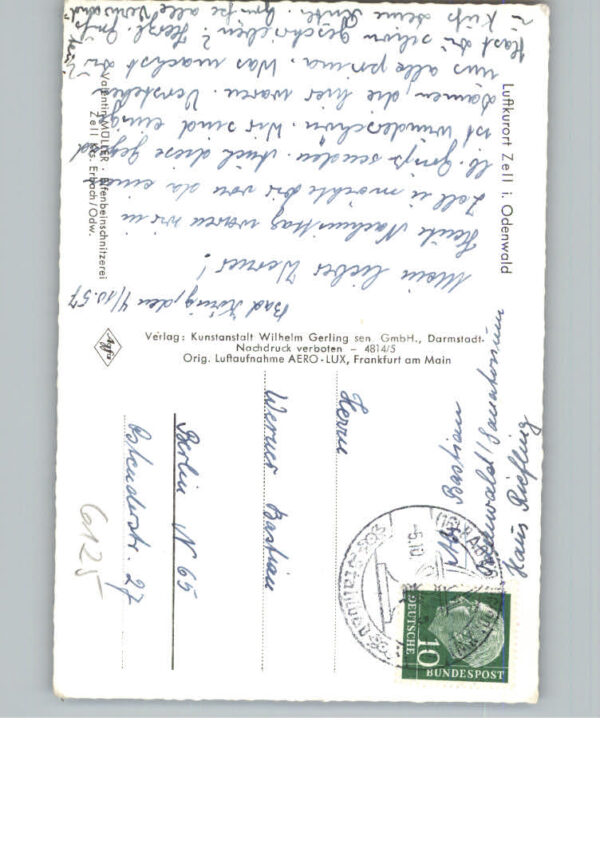 Luftkurort Zell i. Odenwald
Bad König, den 4/10.57
Mein lieber Werner!
Heute Nachmittag waren wir in
Zell u. möchte Dir von da eine
lb. Gruß senden. Auch diese Gegend
ist wunderschön. Wir sind einige
Damen, die hier waren. Verstehen
uns alle prima. Was machst Du
Hast Du schon geschrieben? Herzl. Gruß
u. Kuß deine Grüße alle
Valentin MÜLLER · Elfenbeinschnitzerei
Zell Krs. Erbach/Odw.
Verlag: Kunstanstalt Wilhelm Gerling sen. GmbH., Darmstadt
Nachdruck verboten – 4814/5
Orig. Luftaufnahme AERO-LUX, Frankfurt am Main
Agfa
Abs. Bastian
Odenwald/Sanatorium
Haus Riefling
(16) BAD KÖNIG
-5.10.
DEUTSCHE
BUNDESPOST
10
Herrn
Werner Bastian
Berlin N 65
Ostenderstr. 27
6a125